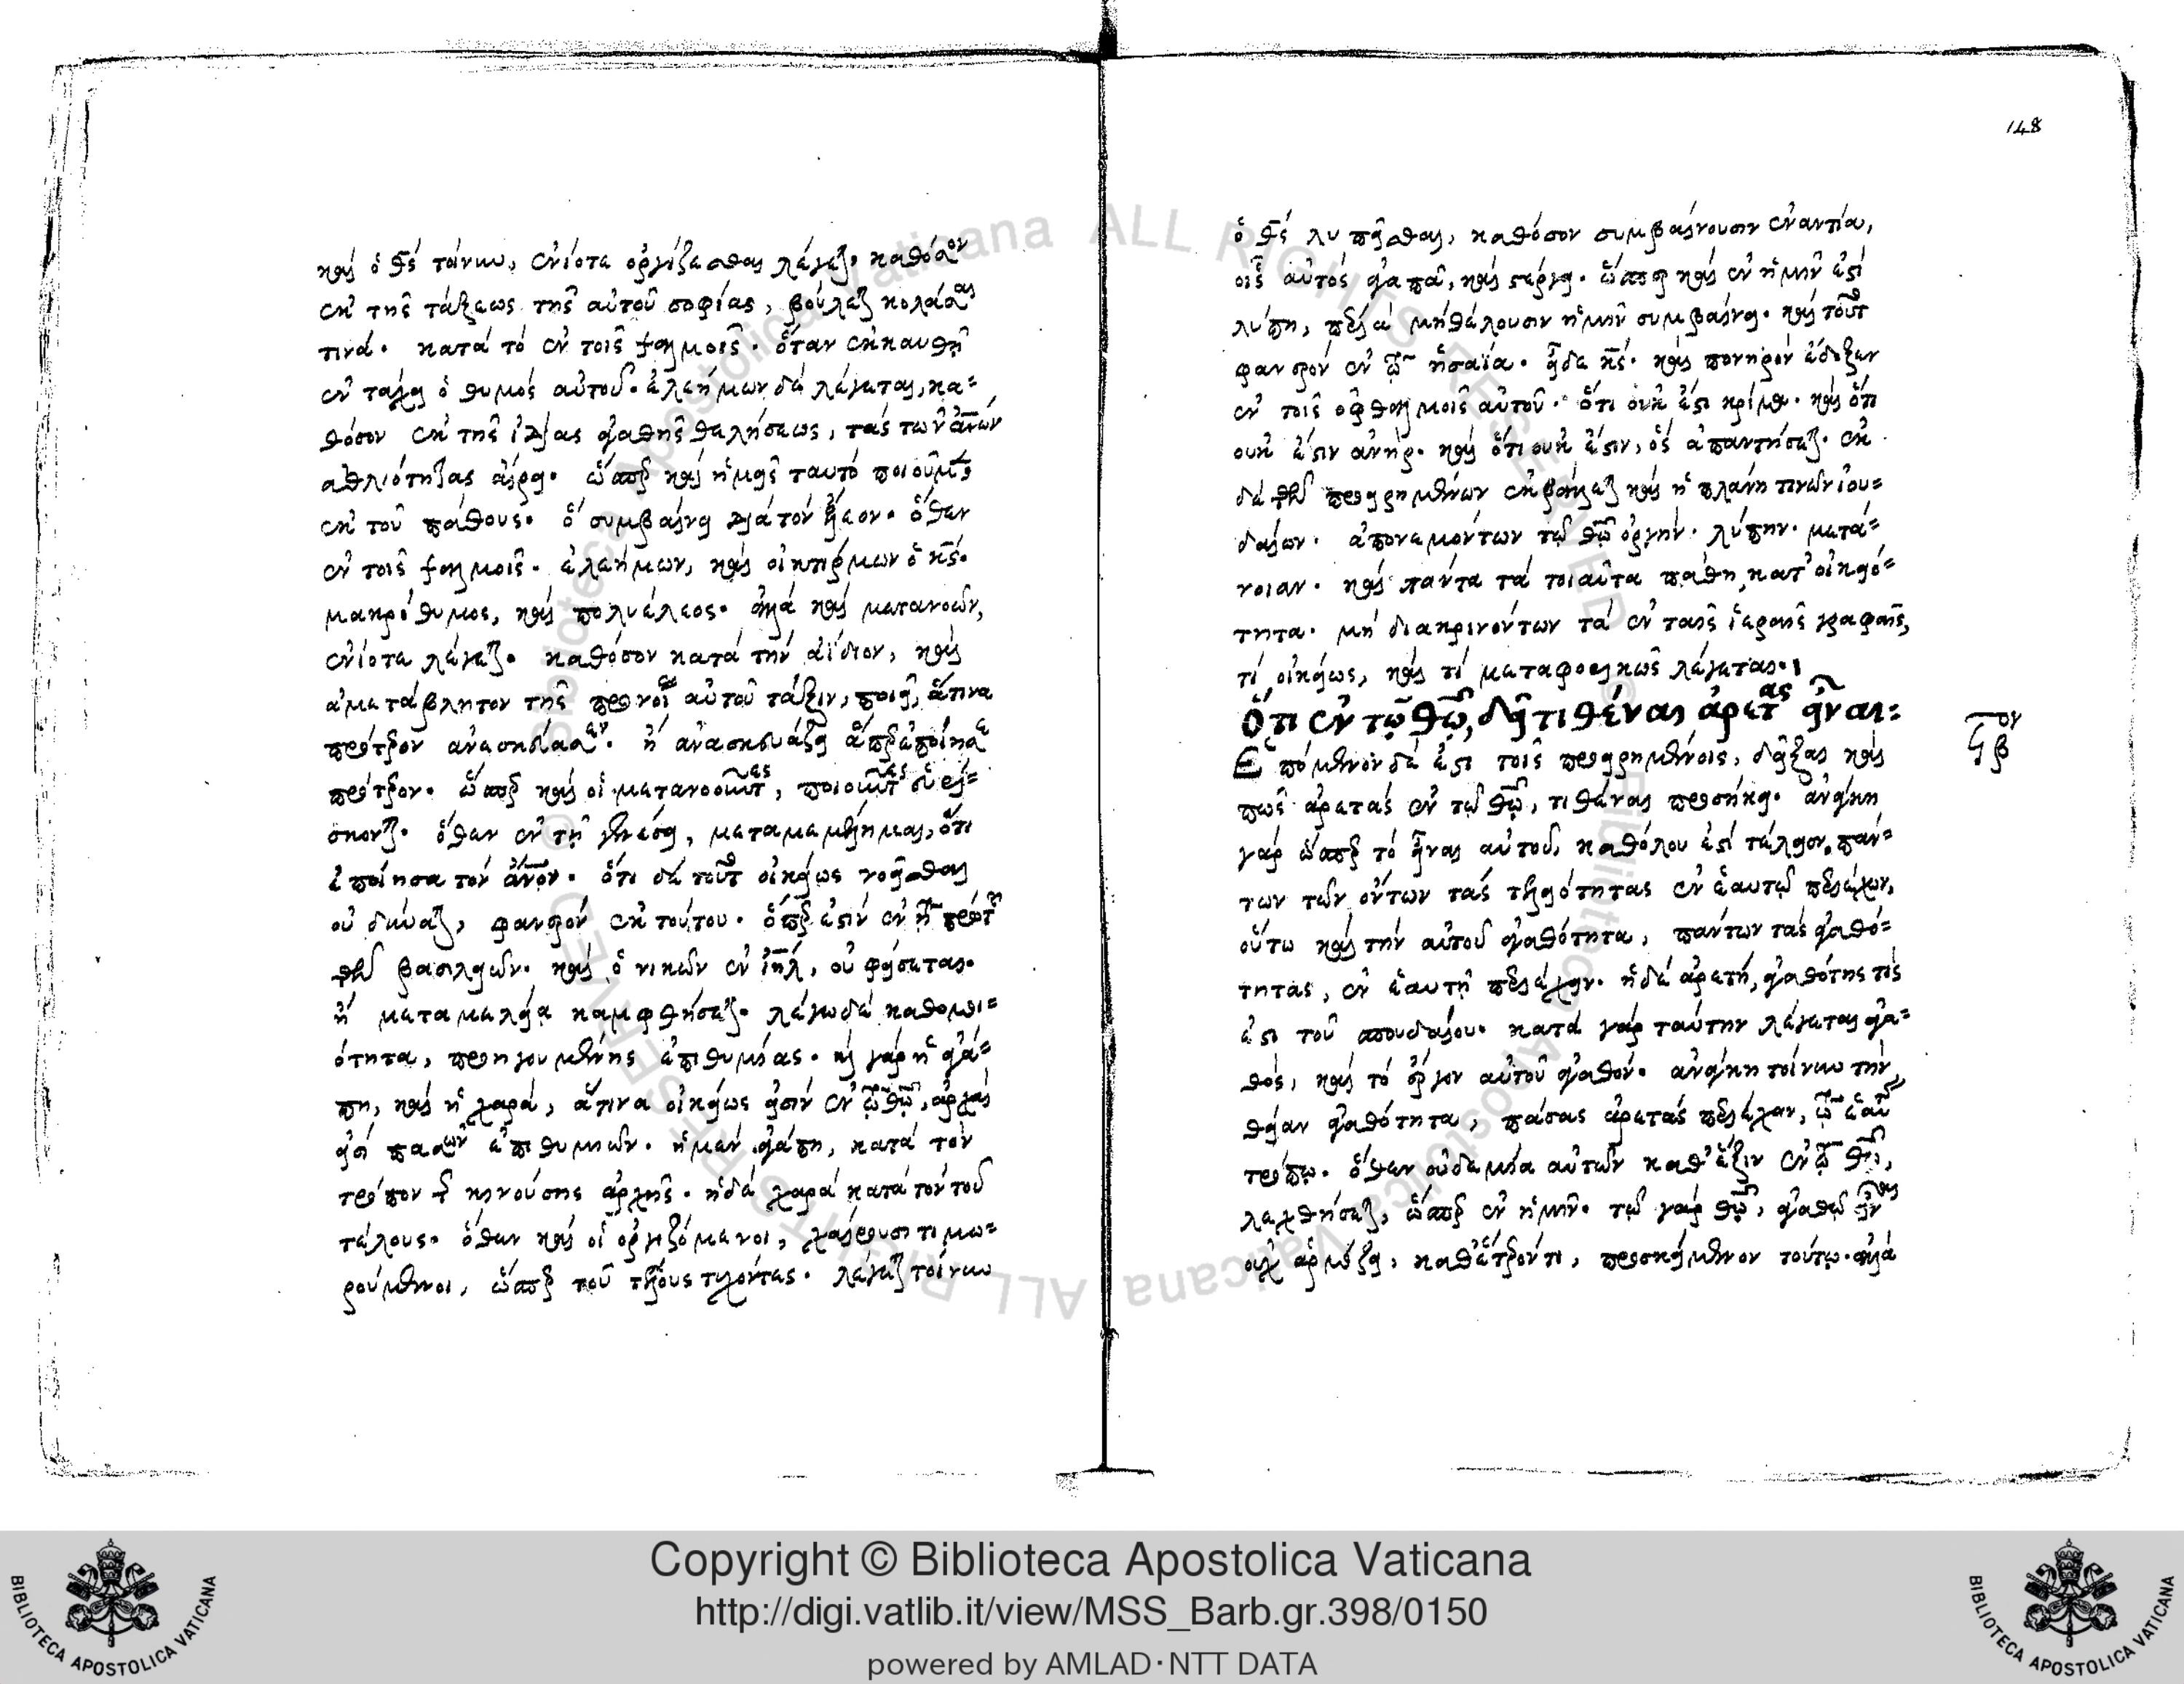 καὶ ὁ θς τοίνυν, ἐνίοτε ὀργίζεσθαι λέγεται· καθόσον
ἐκ τῆς τάξεως τῆς αὐτοῦ σοφίας, βούλεται κολάσαι
τινά· κατὰ τὸ ἐν τοῖς ψαλμοῖς· ὅταν ἐκκαυθῇ
ἐν τάχει ὁ θυμὸς αὐτοῦ· ἐλεήμων δὲ λέγεται, κα=
θόσον ἐκ τῆς ἰδίας ἀγαθῆς θελήσεως, τὰς τῶν ἀνων
ἀθλιότητας αἴρει· ὥσπερ καὶ ἡμεῖς ταυτὸ ποιοῦμεν
ἐκ τοῦ πάθους· ὃ συμβαίνει διὰ τὸν ἔλεον· ὅθεν
ἐν τοῖς ψαλμοῖς· ἐλεήμων, καὶ οἰκτίρμων ὁ κς·
μακρόθυμος, καὶ πολυέλεος· ἀλλὰ καὶ μετανοεῖν,
ἐνίοτε λέγεται· καθόσον κατὰ τὴν ἀΐδιον, καὶ
ἀμετάβλητον τῆς προνοίας αὐτοῦ τάξιν, ποιεῖ, ἅτινα
πρότερον ἀνεσκεύασεν· ἢ ἀνασκευάζει ἅπερ ἐποίησε
πρότερον· ὥσπερ καὶ οἱ μετανοοῦντες, ποιοῦντες εὑρί=
σκονται· ὅθεν ἐν τῇ γενέσει, μεταμεμέλημαι, ὅτι
ἐποίησα τὸν ἄνον· ὅτι δὲ τοῦτο οἰκείως νοεῖσθαι
οὐ δύναται, φανερὸν ἐκ τούτου· ὅπερ ἐστὶν ἐν τῇ πρώτῃ
τῶν βασιλειῶν· καὶ ὁ νικῶν ἐν ιηλ, οὐ φείσεται·
ἢ μεταμελείᾳ καμφθήσεται· λέγω δὲ καθομοι=
ότητα, προηγουμένης ἐπιθυμίας· καὶ γὰρ ἡ ἀγά=
πη, καὶ ἡ χαρά, ἅτινα οἰκείως εἰσὶν ἐν τῷ θῷ, ἀρχαὶ
εἰσὶ πασῶν ἐπιθυμιῶν· ἡ μὲν ἀγάπη, κατὰ τὸν
τρόπον τῆς κινούσης ἀρχῆς· ἡ δὲ χαρὰ κατὰ τὸν τοῦ
τέλους· ὅθεν καὶ οἱ ὀργιζόμενοι, χαίρουσι τιμω=
ρούμενοι, ὥσπερ τοῦ τέλους τυχόντες· λέγεται τοίνυν
148
ὁ θς λυπεῖσθαι, καθόσον συμβαίνουσιν ἐναντία,
οἷς αὐτὸς ἀγαπᾷ, καὶ στέργει· ὥσπερ καὶ ἐν ἡμῖν ἐστὶ
λύπη, περὶ ἃ μὴ θέλουσιν ἡμῖν συμβαίνει· καὶ τοῦτο
φανερὸν ἐν τῷ ἡσαΐᾳ· εἶδε κς· καὶ πονηρὸν ἔδοξεν
ἐν τοῖς ὀφθαλμοῖς αὐτοῦ· ὅτι οὐκ ἔστι κρίσις· καὶ ὅτι
οὐκ ἔστιν ἀνήρ· καὶ ὅτι οὐκ ἔστιν, ὃς ἀπαντήσεται· ἐκ
δὲ τῶν προειρημένων ἐκβάλλεται καὶ ἡ πλάνη τινῶν ἰου=
δαίων· ἀπονεμόντων τῷ θῷ ὀργήν· λύπην· μετά=
νοιαν· καὶ πάντα τὰ τοιαῦτα πάθη κατ' οἰκειό=
τητα· μὴ διακρινόντων τὰ ἐν ταῖς ἱεραῖς γραφαῖς,
τί οἰκείως, καὶ τί μεταφορικῶς λέγεται·
Ὅτι ἐν τῷ θῷ, δεῖ τιθέναι ἀρετὰς εἶναι:
ϟβον
Ἑπόμενον δέ ἐστι τοῖς προειρημένοις, δεῖξαι καὶ
πῶς ἀρετὰς ἐν τῷ θῷ, τιθέναι προσήκει· ἀνάγκη
γὰρ ὥσπερ τὸ εἶναι αὐτοῦ, καθόλου ἐστὶ τέλειον, πάν=
των τῶν ὄντων τὰς τελειότητας ἐν ἑαυτῷ περιέχον,
οὕτω καὶ τὴν αὐτοῦ ἀγαθότητα, πάντων τὰς ἀγαθό=
τητας, ἐν ἑαυτῇ περιέχειν· ἡ δὲ ἀρετή, ἀγαθότης τίς
ἐστι τοῦ σπουδαίου· κατὰ γὰρ ταύτην λέγεται ἀγα=
θός, καὶ τὸ ἔργον αὐτοῦ ἀγαθόν· ἀνάγκη τοίνυν τὴν
θείαν ἀγαθότητα, πάσας ἀρετὰς περιέχειν, τῷ ἑαυτῆς
τρόπῳ· ὅθεν οὐδεμία αὐτῶν καθ' ἕξιν ἐν τῷ θῷ,
λεχθήσεται, ὥσπερ ἐν ἡμῖν· τῷ γὰρ θῷ, ἀγαθῷ εἶναι
οὐχ ἁρμόζει, καθ' ἕτερόν τι, προσκείμενον τούτῳ· ἀλλὰ
Copyright © Biblioteca Apostolica Vaticana
http://digi.vatlib.it/view/MSS_Barb.gr.398/0150
powered by AMLAD·NTT DATA
BIBLIOTECA APOSTOLICA VATICANA
BIBLIOTECA APOSTOLICA VATICANA
Biblioteca Apostolica Vaticana ALL RIGHTS RESERVED
© Biblioteca Apostolica Vaticana ALL RIGHTS RESERVED